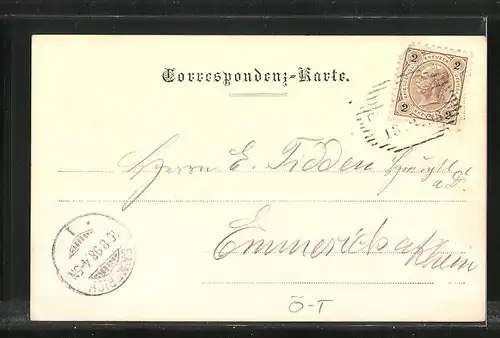 Correspondenz-Karte.
2 2
2 2
18.
Herrn E. Tidden Hauptl.
a.D.
Emmerich a/Rhein
EMMERICH
* 1
.8.98.4-5N
Ö-T